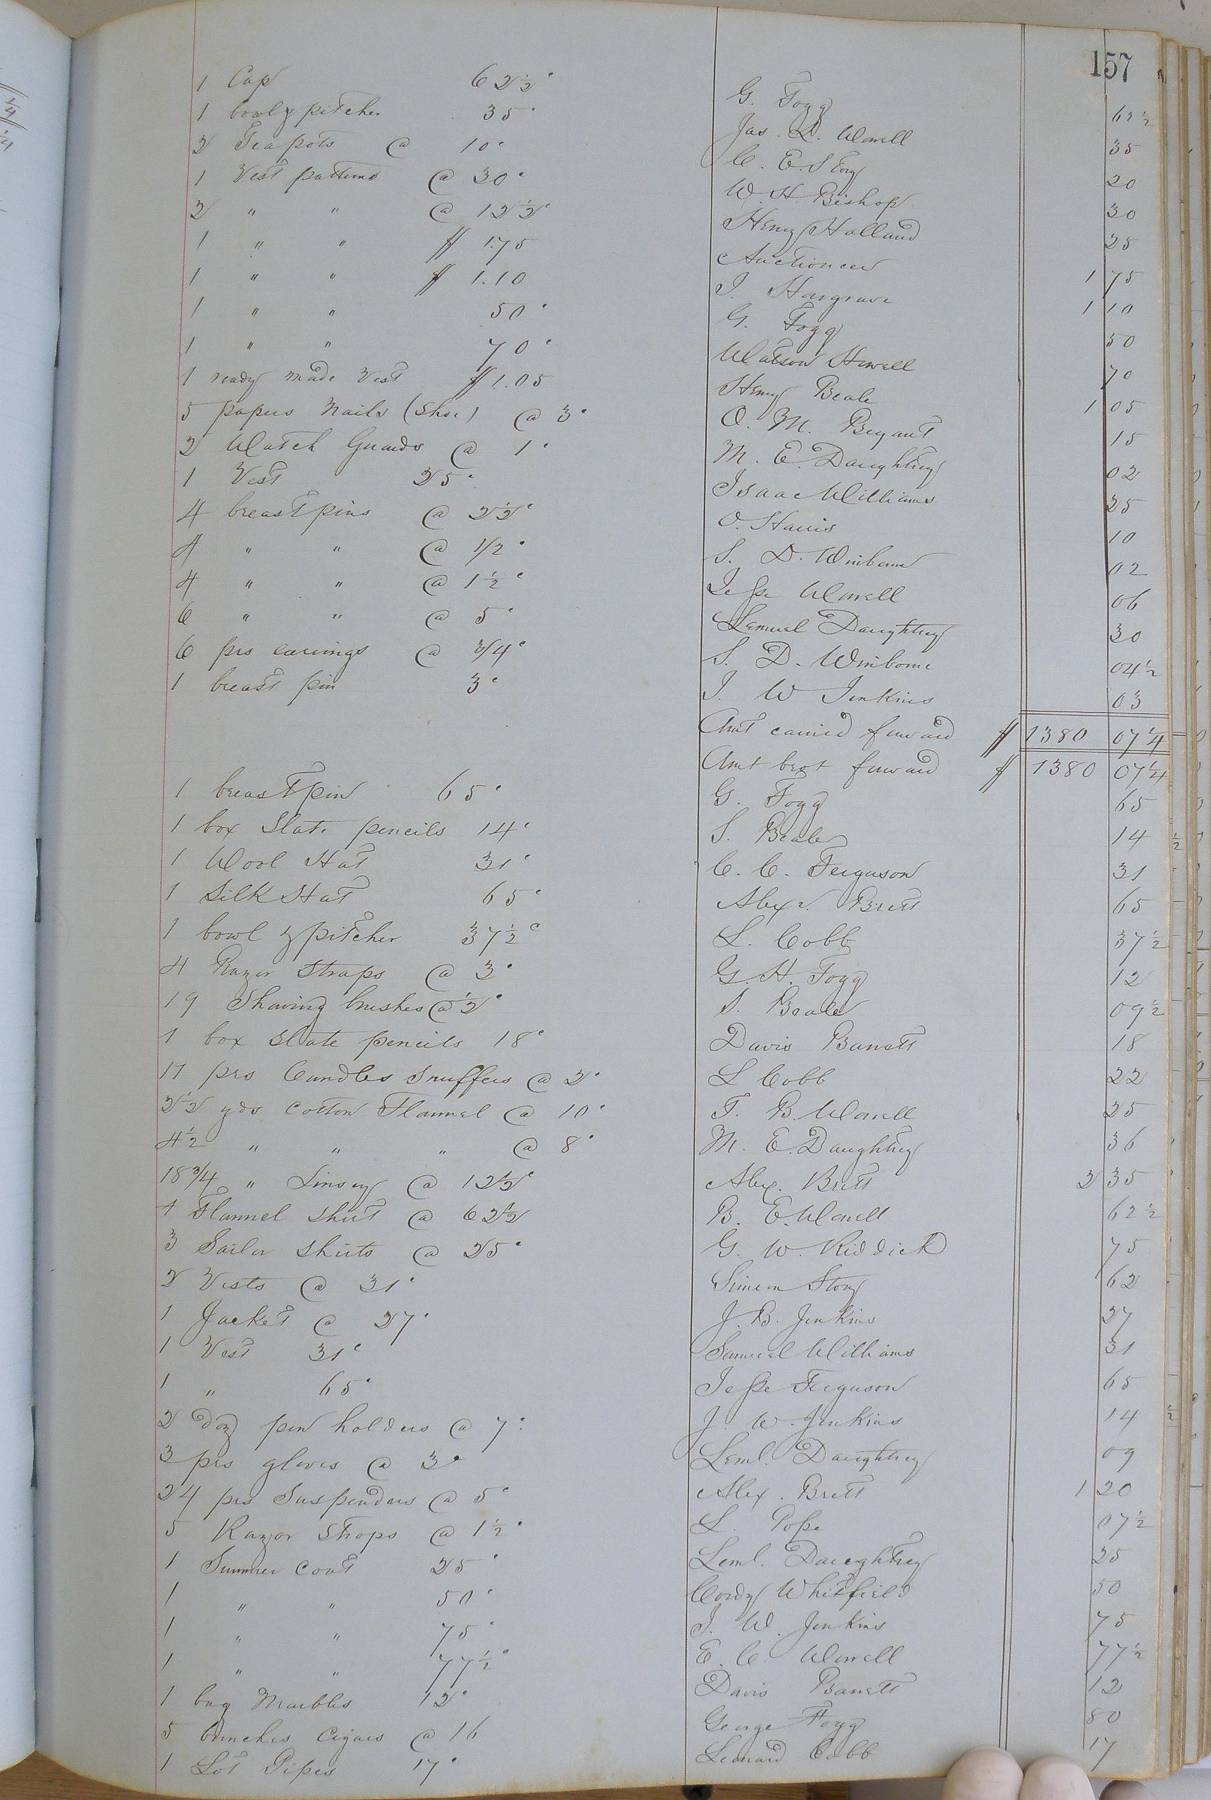 157
1 Cap 62½c G. Fogg 62½
1 bowl & pitcher 35c Jas. L. Worrell 35
2 Teapots @ 10c C. E. Story 20
1 Vest patterns @ 30c W. H Bishop 30
2 " " @ 12½c Henry Holland 25
1 " " $ 1.75 Auctioneer 1 75
1 " " $ 1.10 J. Hargrave 1 10
1 " " 50c G. Fogg 50
1 " " 70c Watson Howell 70
1 ready made Vest $1.05 Henry Beale 1 05
5 papers Nails (Shoe) @ 3c O. M. Bryant 15
2 Watch Guards @ 1c M. E. Daughtrey 02
1 Vest 25c Isaac Williams 25
4 breast pins @ 2½c O. Harris 10
4 " " @ 1/2c S. D. Winborne 02
4 " " @ 1½c Jesse Worrell 06
6 " " @ 5c Lemuel Daughtrey 30
6 prs earrings @ 3/4c S. D. Winborne 04½
1 breast pin 3c J. W Jenkins 03
Amt carried forward $ 1380 07¼
Amt brot forward $ 1380 07¼
1 breast pin 65c G. Fogg 65
1 box Slate pencils 14c S. Beale 14
1 Wool Hat 31c C. C. Ferguson 31
1 Silk Hat 65c Alexr. Brett 65
1 bowl & pitcher 37½c L. Cobb 37½
4 Razor Straps @ 3c G. H. Fogg 12
19 Shaving brushes @ ½c S. Beale 09½
1 box Slate pencils 18c Davis Barrett 18
11 prs Candles Snuffers @ 2c L Cobb 22
2½ yds Cotton Flannel @ 10c T. B. Worrell 25
4½ " " " @ 8c M. E. Daughtrey 36
18 3/4 " Linsey @ 12½c Alex. Brett 2 35
1 Flannel Shirt @ 62½ B. E. Worrell 62½
3 Sailor Shirts @ 25c G. W. Riddick 75
2 Vests @ 31c Simeon Story 62
1 Jacket @ 27c J. B. Jenkins 27
1 Vest 31c Samuel Williams 31
1 " 65c Jesse Ferguson 65
2 Doz pen holders @ 7c J. W. Jenkins 14
3 prs gloves @ 3c Leml. Daughtrey 09
24 prs Suspenders @ 5c Alex. Brett 1 20
5 Razor Strops @ 1½c L. Pope 07½
1 Summer Coat 25c Leml. Daughtrey 25
1 " " 50c Cordy Whitfield 50
1 " " 75c J. W. Jenkins 75
1 " " 77½c E. C Worrell 77½
1 bag Marbles 12c Davis Barrett 12
5 bunches Cigars @ 16 George Fogg 80
1 Lot Pipes 17c Leonard Cobb 17